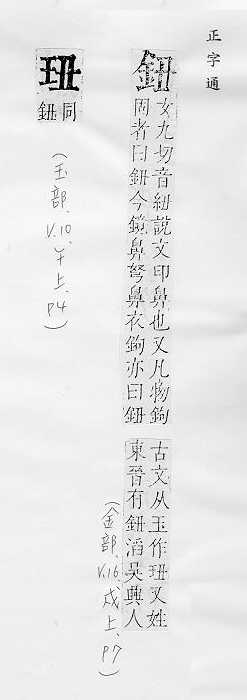 正字通
鈕
女九切音紐說文印鼻也又凡物鉤
固者曰鈕今鏡鼻弩鼻衣鉤亦曰鈕
古文从玉作㺲又姓
東晉有鈕滔吳興人
(金部、V.16、戌上、P7)
㺲
同
鈕
(玉部、V.10、午上、P4)